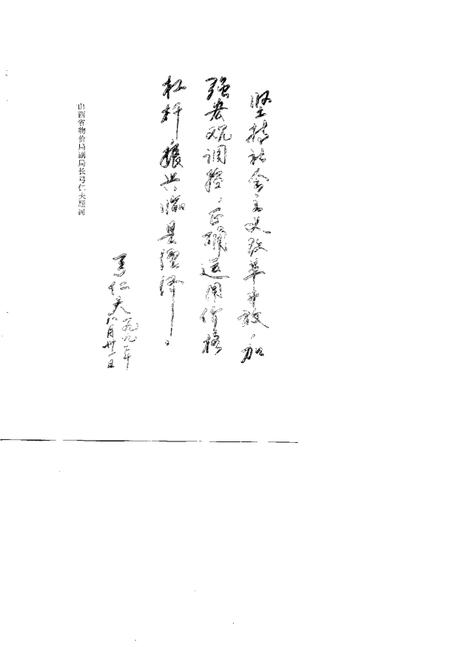 坚持社会主义改革开放，加
强宏观调控，正确运用价格
杠杆 振兴临县经济。
仁天 一九九二年
八月卅一日
山西省物价局副局长 仁天题词